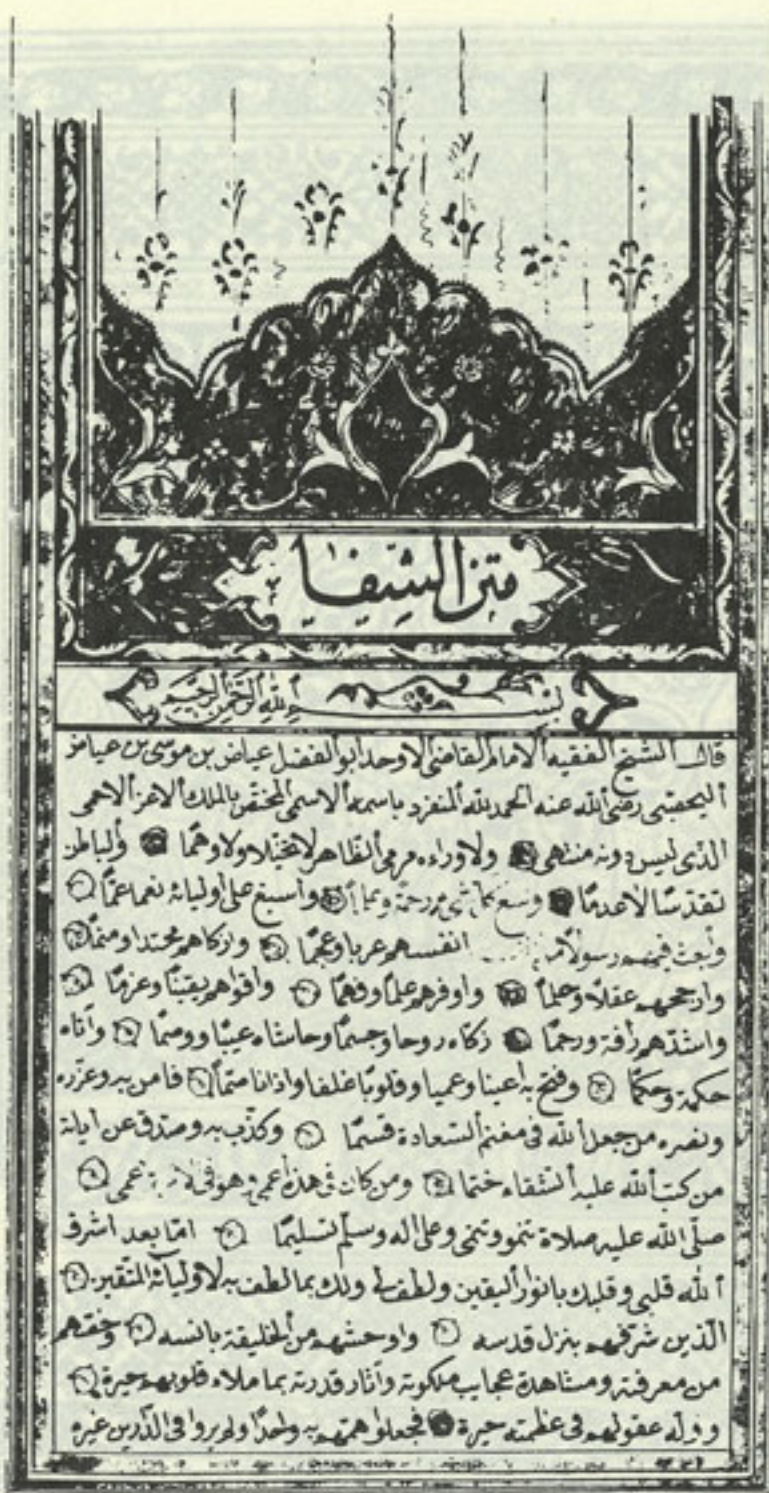 متن الشفا
بسم الله الرحمن الرحيم
قال الشيخ الفقيه الامام القاضى الاوحد ابو الفضل عياض بن موسى بن عياض
اليحصبى رضى الله عنه الحمد لله المنفرد باسمه الاسمى المختص بالملك الاعز الاحمى
الذى ليس دونه منتهى ولا وراءه مرمى الظاهر لا تخيلا ولا وهما والباطن
تقدسا لا عدما وسع كل شئ رحمة وعلما واسبغ على اوليائه نعما عما
وبعث فيهم رسولا من انفسهم عربا وعجما وازكاهم محتدا ومنما
وارجحهم عقلا وحلما واوفرهم علما وفهما واقواهم يقينا وعزما
واشدهم رأفة ورحما زكاه روحا وجسما وحاشاه عيبا ووصما وآتاه
حكمة وحكما وفتح به اعينا عميا وقلوبا غلفا واذانا صما فامن به وعزره
ونصره من جعل الله فى مغنم السعادة قسما وكذب به وصدف عن اياته
من كتب الله عليه الشقاء حتما ومن كان فى هذه اعمى فهو فى اعمى
صلى الله عليه صلاة تنمو وتنمى وعلى اله وسلم تسليما اما بعد اشرق
الله قلبى وقلبك بانوار اليقين ولطف لى ولك بما لطف به لاوليائه المتقين
الذين شرفهم بنزل قدسه واوحشهم من الخليقة بانسه وخصهم
من معرفته ومشاهدة عجايب ملكوته وآثار قدرته بما ملاء قلوبهم حبرة
ووله عقولهم فى عظمته حيرة فجعلوا همهم به واحدا ولم يروا فى الدارين غيره